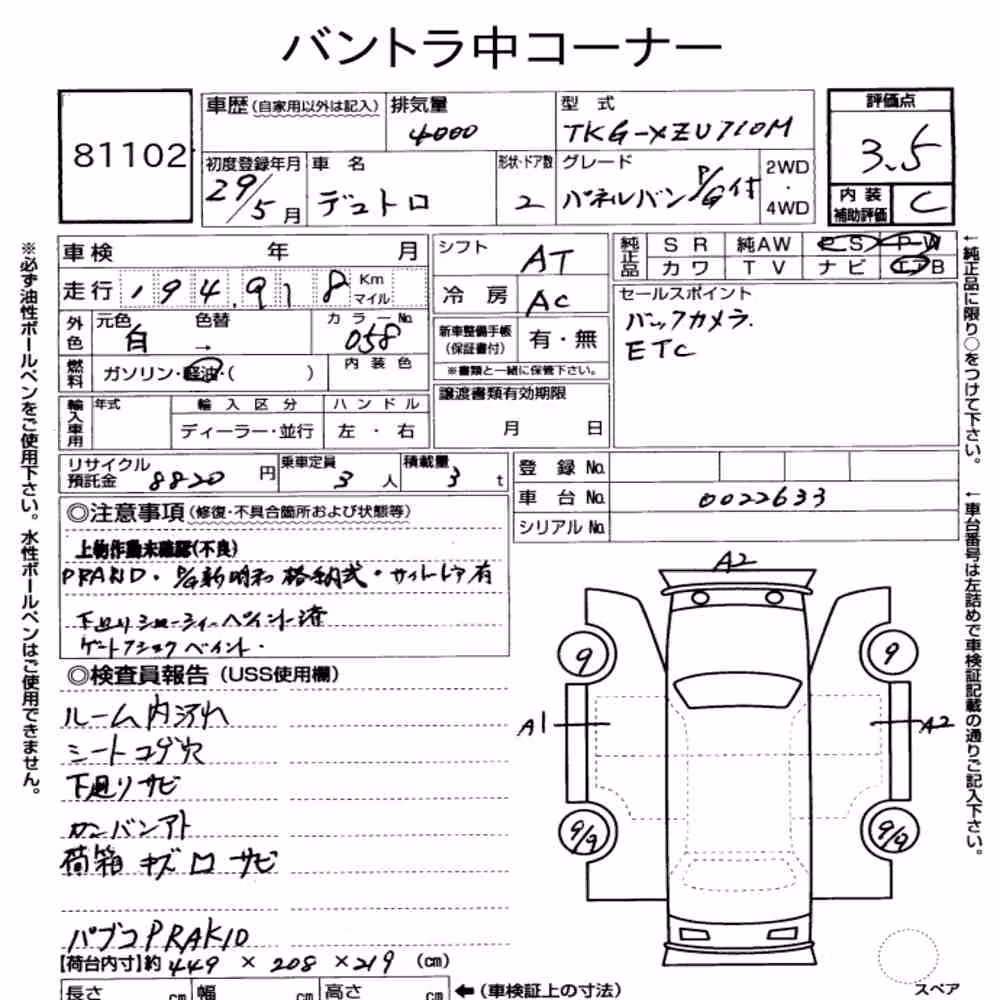 バントラ中コーナー
81102
車歴(自家用以外は記入) 排気量 4000
型式 TKG-XZU710M
評価点 3.5
初度登録年月 29/5月
車名 デュトロ
形状・ドア数 2
グレード パネルバン P/G付
2WD・4WD
内装補助評価 C
車検 年 月
走行 194,918 Km マイル
外色 元色 白 色替 → カラーNo. 058
燃料 ガソリン・軽油・( ) 内装色
輸入車用 年式 輸入区分 ハンドル
ディーラー・並行 左・右
シフト AT
冷房 AC
新車整備手帳(保証書付) 有・無
※書類と一緒に保管下さい。
譲渡書類有効期限
月 日
純正品 SR 純AW PS PW
カワ TV ナビ エアB
セールスポイント
バックカメラ.
ETC
リサイクル預託金 8820円
乗車定員 3人
積載量 3t
登録No.
車台No. 0022633
シリアルNo.
◎注意事項(修復・不具合箇所および状態等)
上物作動未確認(不良)
PRAKID・P/G新明和 格納式・サイドドア有
下廻りシャーシィーペイント済
ゲートアシック ペイント.
◎検査員報告(USS使用欄)
ルーム内汚れ
シートコゲ穴
下廻りサビ
カンバンアト
荷箱 キズ ロ サビ
パブコPRAKID
【荷台内寸】約 449 × 208 × 219 (cm)
長さ cm 幅 cm 高さ cm ←(車検証上の寸法)
A2
9
9
A1
A2
9/9
9/9
スペア
※必ず油性ボールペンをご使用下さい。水性ボールペンはご使用できません。
←純正品に限り○をつけて下さい。
←車台番号は左詰めで車検証記載の通りご記入下さい。